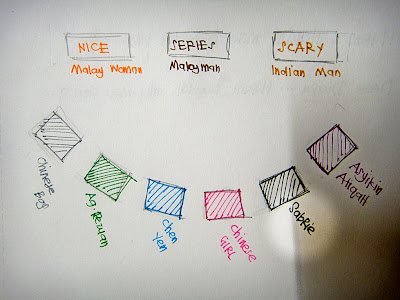 NICE
SERIES
SCARY
Malay Woman
Malay man
Indian Man
Chinese
Boy
Ag. Rezuan
Chen
Yen
Chinese
GIRL
Sabrie
Asyikin
Atiqah